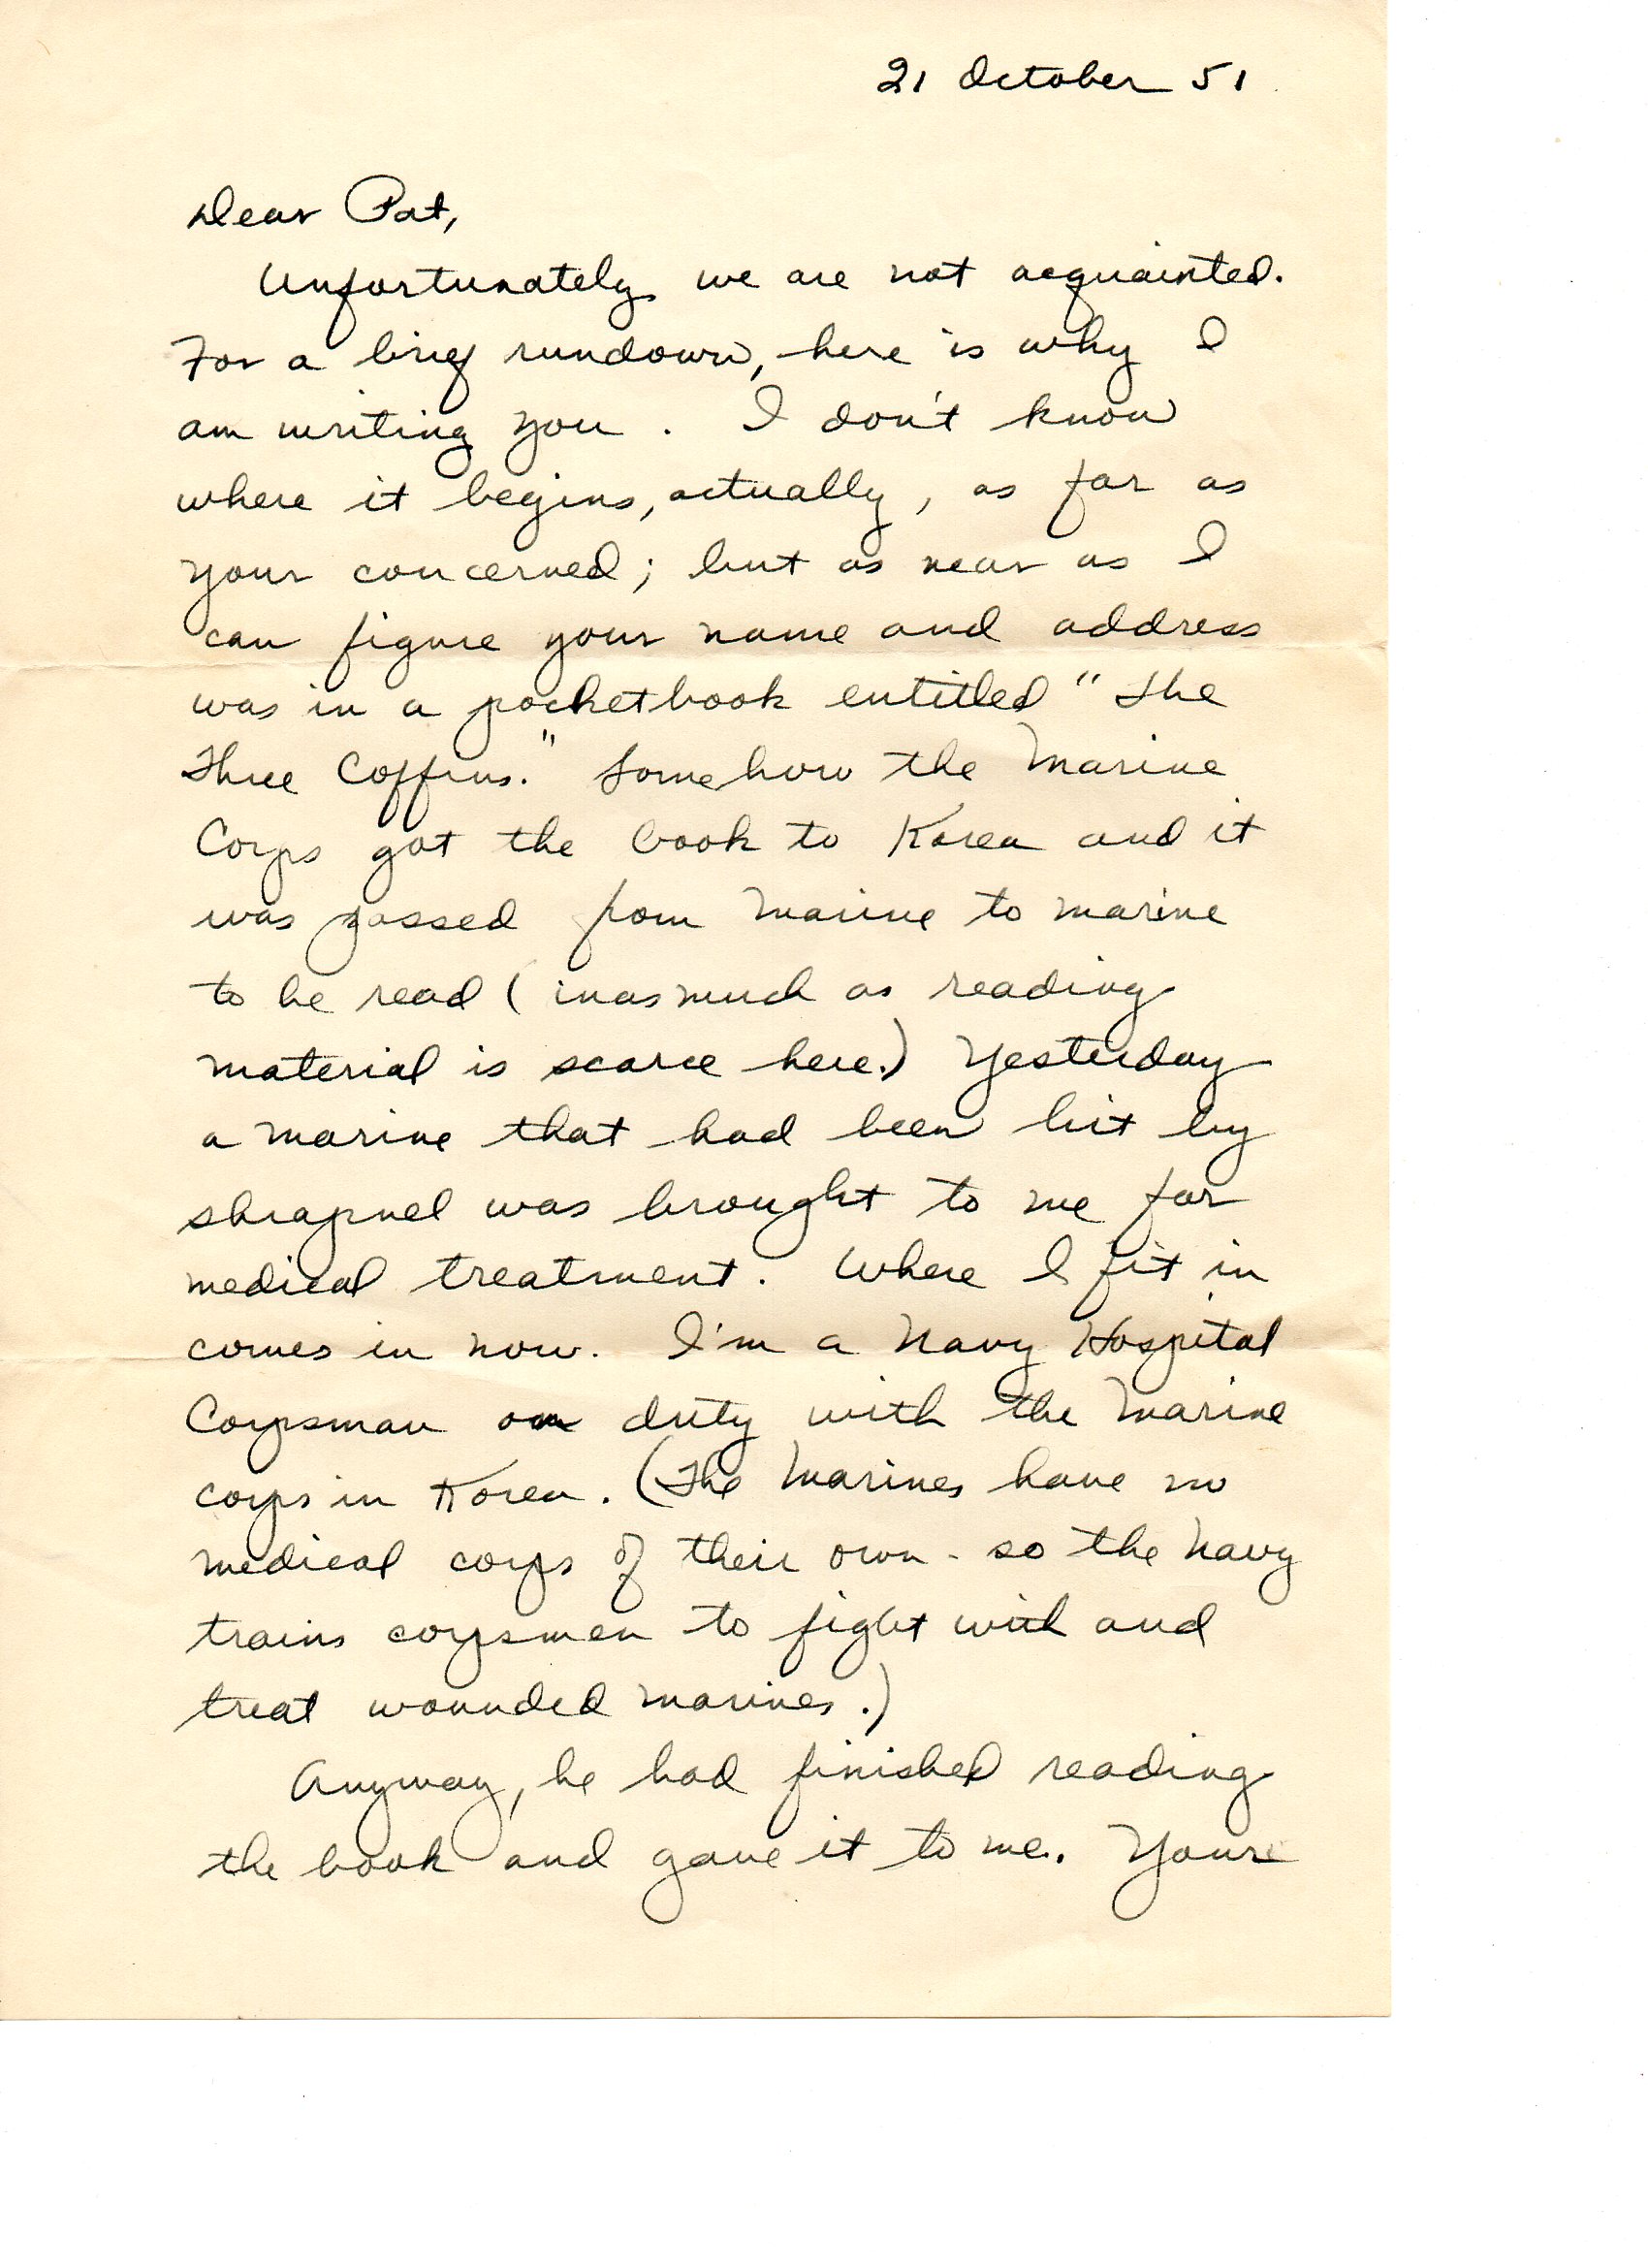 21 October 51
Dear Pat,
Unfortunately we are not acquainted.
For a brief rundown, here is why I
am writing you. I don't know
where it begins, actually, as far as
your concerned; but as near as I
can figure your name and address
was in a pocketbook entitled "The
Three Coffins." Somehow the Marine
Corps got the book to Korea and it
was passed from marine to marine
to be read (inasmuch as reading
material is scarce here.) Yesterday
a marine that had been hit by
shrapnel was brought to me for
medical treatment. Where I fit in
comes in now. I'm a Navy Hospital
Corpsman on duty with the Marine
corps in Korea. (The Marines have no
medical corps of their own - so the Navy
trains corpsmen to fight with and
treat wounded marines.)
Anyway, he had finished reading
the book and gave it to me. Your